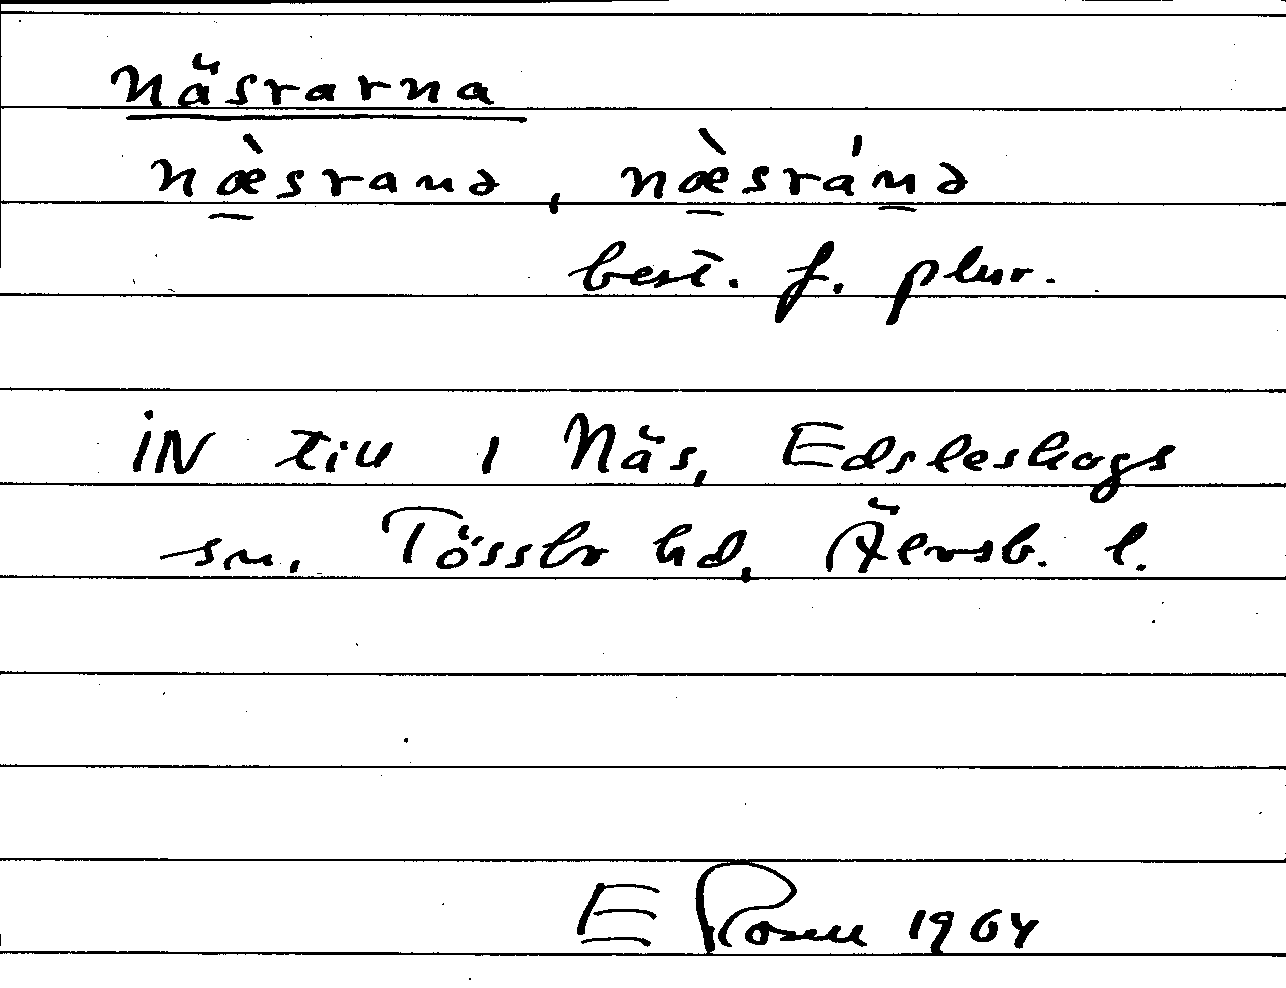 Näsrarna
næ̀srana, næ̀srána
best. f. plur.
IN till 1 Näs, Edsleskogs
sn. Tössbo hd, Älvsb. l.
E Rosell 1964